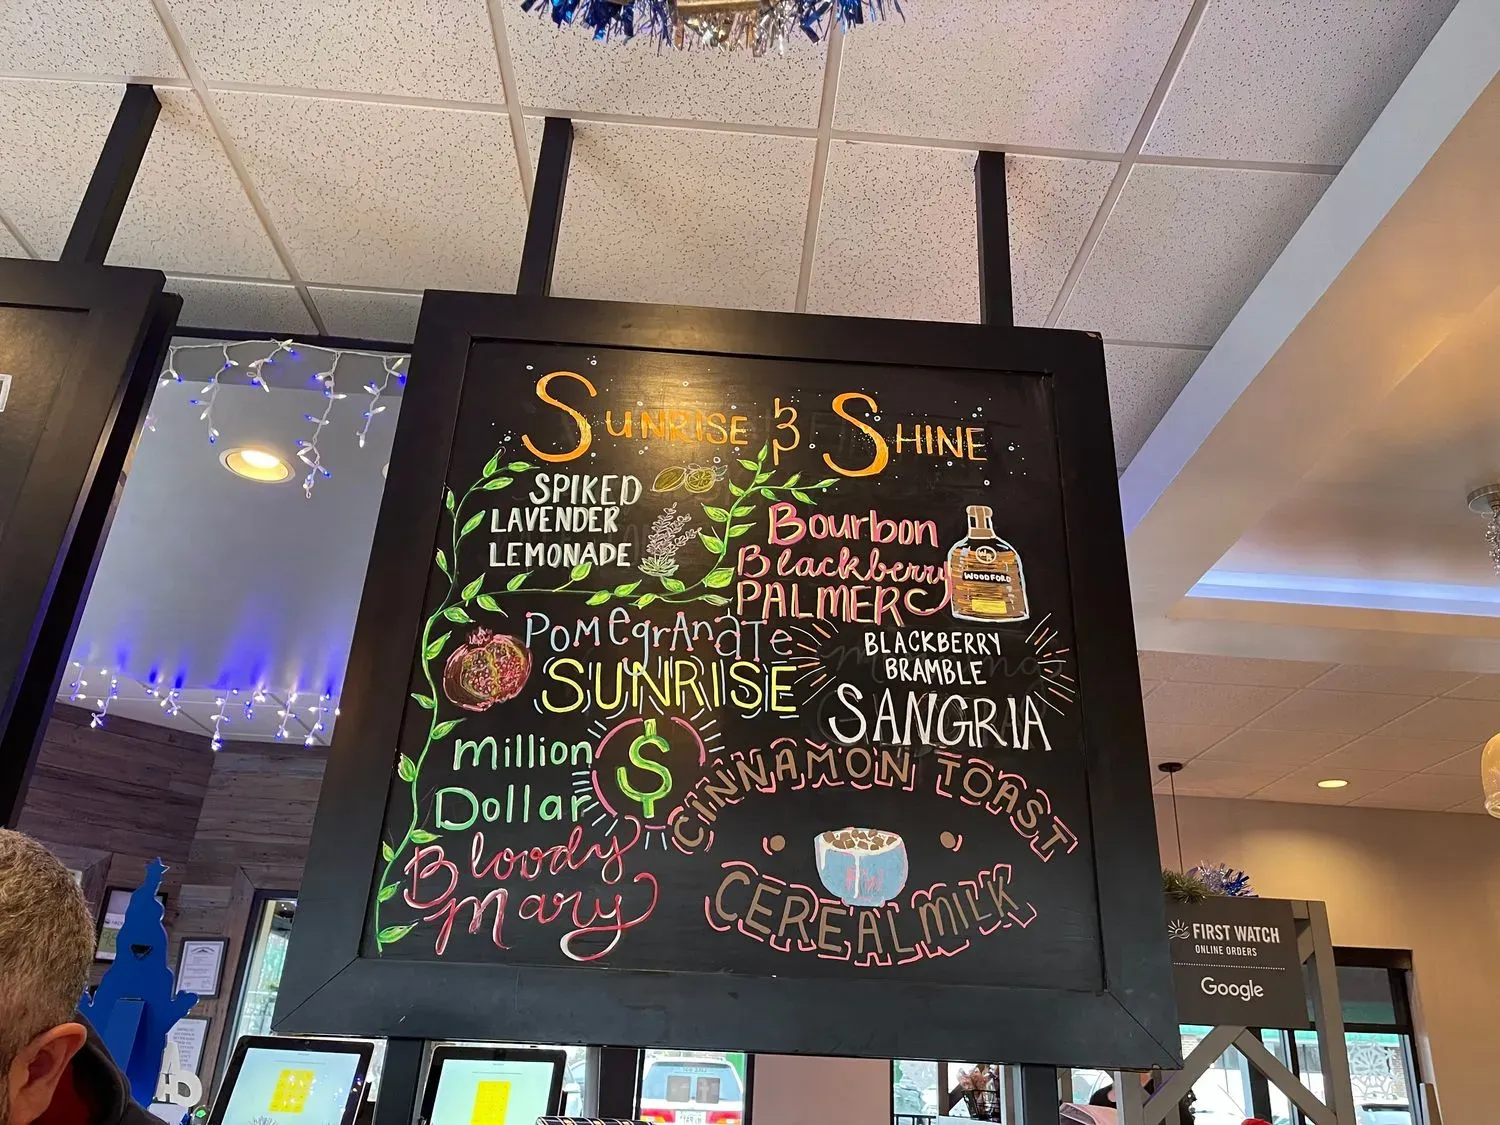 SUNRISE & SHINE
SPIKED
LAVENDER
LEMONADE
Bourbon
Blackberry
PALMER
WR
WOODFORD
POMegrAnaTe
SUNRISE
BLACKBERRY
BRAMBLE
SANGRIA
million
Dollar
$
Bloody
Mary
CINNAMON TOAST
CEREAL MILK
FIRST WATCH
ONLINE ORDERS
Google